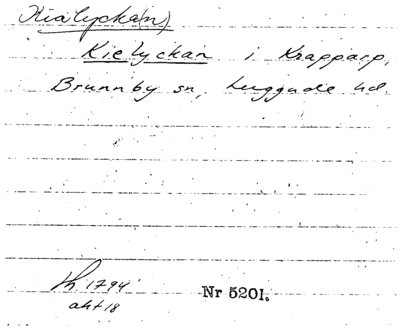 Kialyckan(n)
Kielyckan i Krapparp,
Brunnby sn, Luggude hd.
1794
akt 18
Nr 5201.